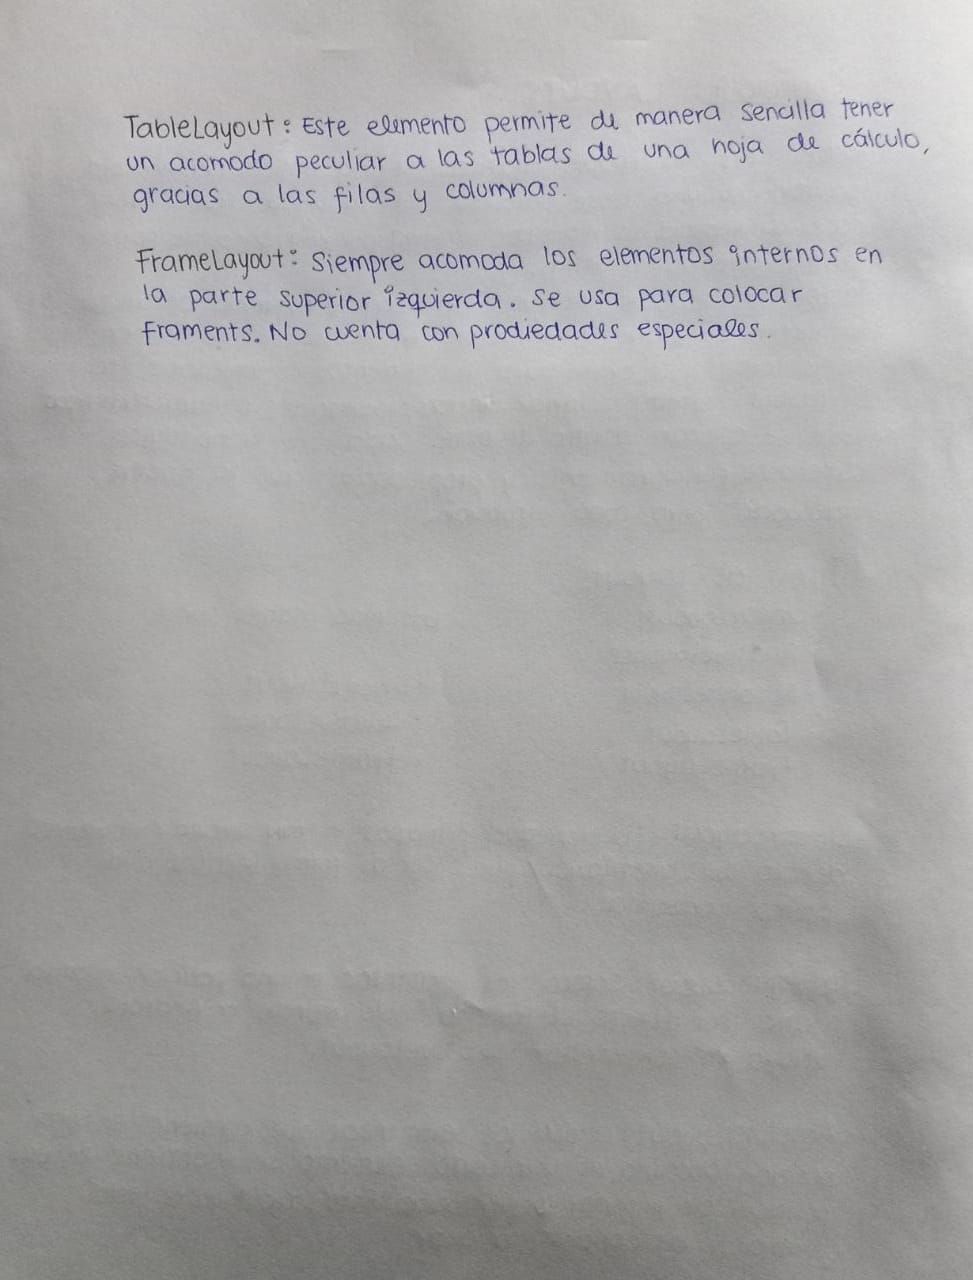 TableLayout: Este elemento permite de manera sencilla tener
un acomodo peculiar a las tablas de una hoja de cálculo,
gracias a las filas y columnas.
FrameLayout: Siempre acomoda los elementos internos en
la parte superior izquierda. Se usa para colocar
framents. No cuenta con prodiedades especiales.